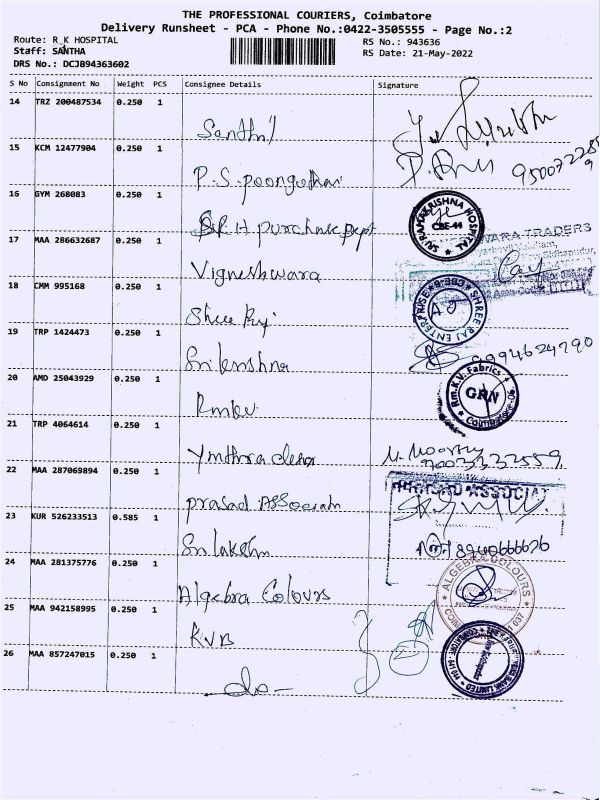 THE PROFESSIONAL COURIERS, Coimbatore
Delivery Runsheet - PCA - Phone No.:0422-3505555 - Page No.:2
Route: R_K HOSPITAL
Staff: SANTHA
DRS No.: DCJB94363602
RS No.: 943636
RS Date: 21-May-2022
S No Consignment No Weight PCS Consignee Details Signature
14 TRZ 200487534 0.250 1
Santhil
15 KCM 12477904 0.250 1
P.S. Poongothai
16 GYM 268083 0.250 1
SRH purchase Dept
SRI RAMAKRISHNA HOSPITAL
CBE-44
17 MAA 286632687 0.250 1
Vigneshwara
WARA TRADERS
18 CMM 995168 0.250 1
Shree Raj
SHREE RAJ ENTERPRISES CBE-6
19 TRP 1424473 0.250 1
Srikrishna
9994624790
20 AMD 25043929 0.250 1
Rmkv
Rm.K.V. Fabrics
GRN
Coimbatore-06
21 TRP 4064614 0.250 1
M. Moorthy
22 MAA 287069894 0.250 1
prasad Associat
PRASAD ASSOCIAT
23 KUR 526233513 0.585 1
Sri lakshmi
24 MAA 281375776 0.250 1
Algebra Colours
ALGEBRA COLOURS
25 MAA 942158995 0.250 1
KVB
26 MAA 857247015 0.250 1
-do-